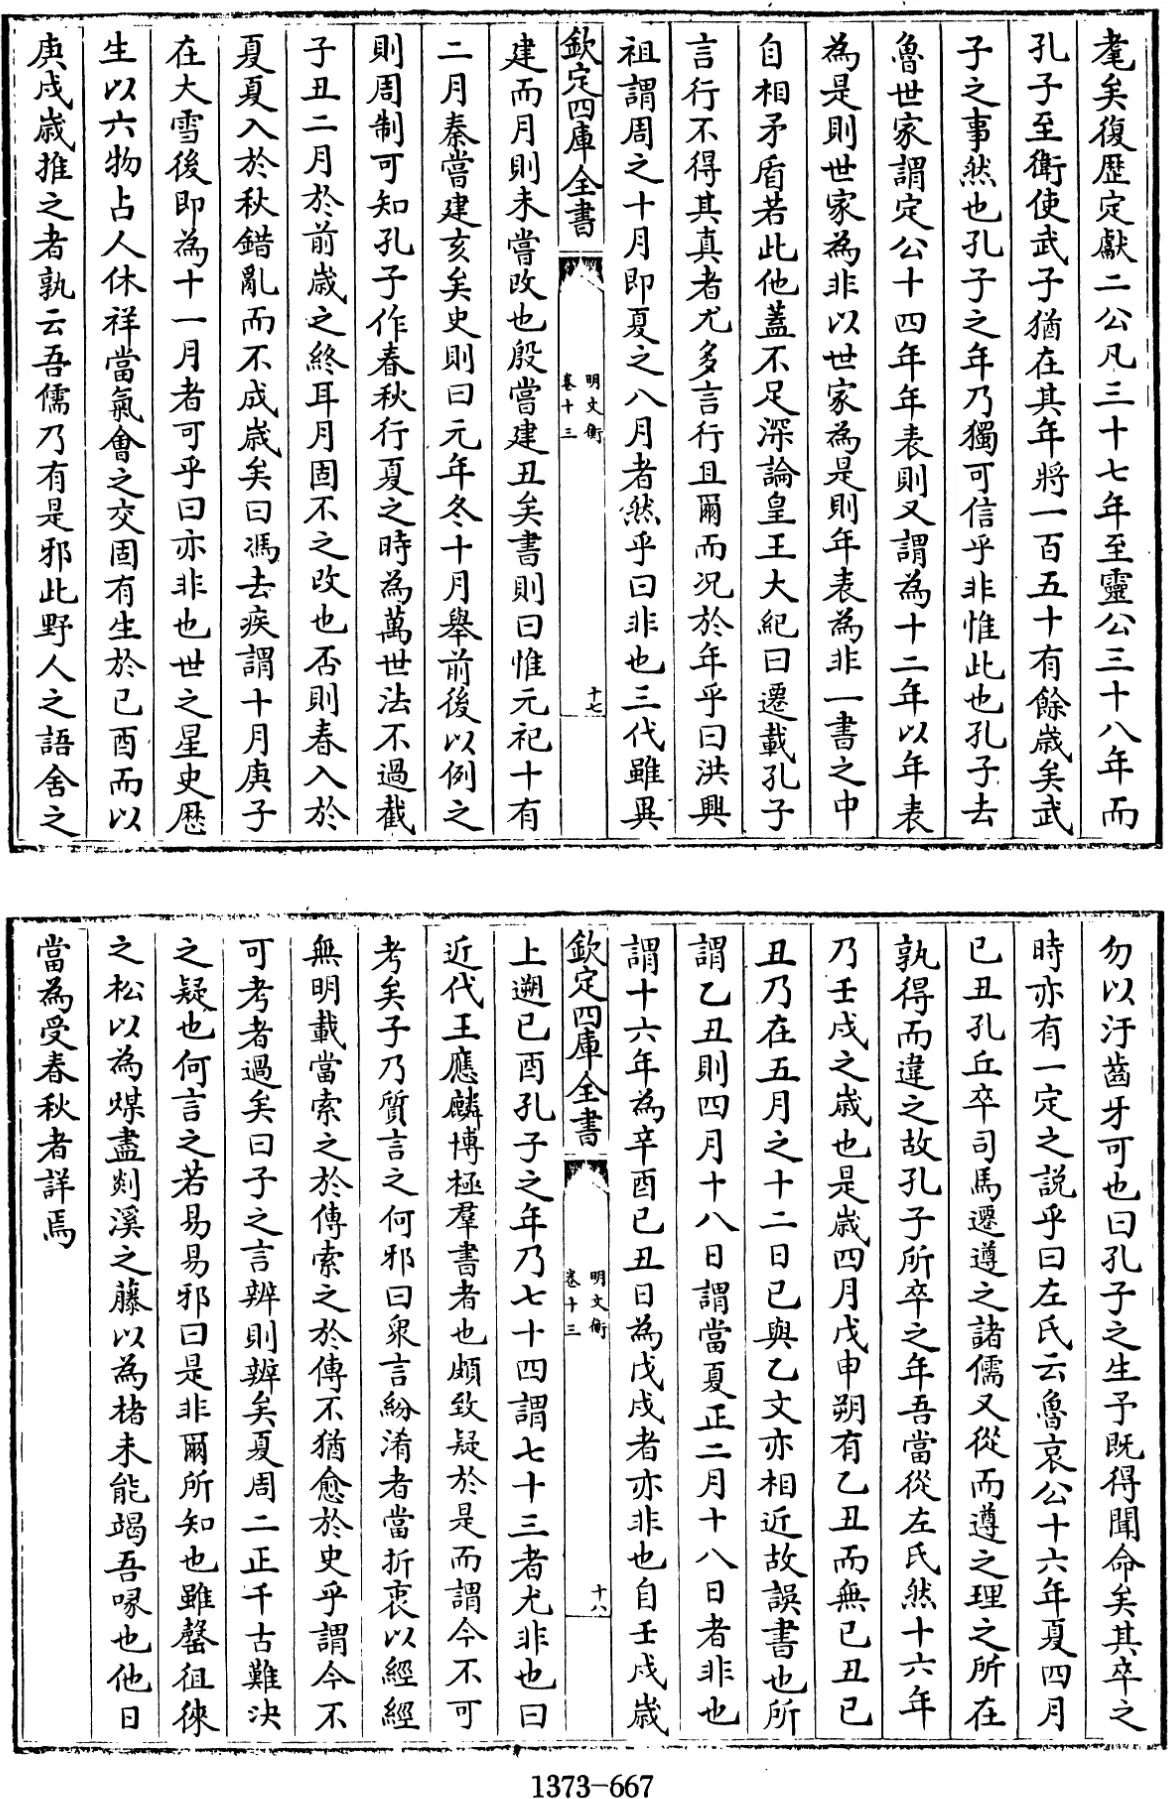 耄矣復歴定獻二公凡三十七年至靈公三十八年而
孔子至衛使武子猶在其年將一百五十有餘歳矣武
子之事然也孔子之年乃獨可信乎非惟此也孔子去
魯世家謂定公十四年年表則又謂為十二年以年表
為是則世家為非以世家為是則年表為非一書之中
自相矛盾若此他蓋不足深論皇王大紀曰遷載孔子
言行不得其真者尤多言行且爾而况於年乎曰洪興
祖謂周之十月即夏之八月者然乎曰非也三代雖異
欽定四庫全書
明文衡
卷十三
十七
建而月則未嘗改也殷嘗建丑矣書則曰惟元祀十有
二月秦嘗建亥矣史則曰元年冬十月舉前後以例之
則周制可知孔子作春秋行夏之時為萬世法不過截
子丑二月於前歳之終耳月固不之改也否則春入於
夏夏入於秋錯亂而不成歳矣曰馮去疾謂十月庚子
在大雪後即為十一月者可乎曰亦非也世之星史厯
生以六物占人休祥當氣會之交固有生於已酉而以
庚戌歳推之者孰云吾儒乃有是邪此野人之語舍之
勿以汙齒牙可也曰孔子之生予既得聞命矣其卒之
時亦有一定之説乎曰左氏云魯哀公十六年夏四月
已丑孔丘卒司馬遷遵之諸儒又從而遵之理之所在
孰得而違之故孔子所卒之年吾當從左氏然十六年
乃壬戌之歳也是歳四月戊申朔有乙丑而無已丑已
丑乃在五月之十二日已與乙文亦相近故誤書也所
謂乙丑則四月十八日謂當夏正二月十八日者非也
謂十六年為辛酉已丑日為戊戌者亦非也自壬戌歳
欽定四庫全書
明文衡
卷十三
十八
上遡已酉孔子之年乃七十四謂七十三者尤非也曰
近代王應麟博極羣書者也頗致疑於是而謂今不可
考矣子乃質言之何邪曰衆言紛淆者當折衷以經經
無明載當索之於傳索之於傳不猶愈於史乎謂今不
可考者過矣曰子之言辨則辨矣夏周二正千古難決
之疑也何言之若易易邪曰是非爾所知也雖罄徂徠
之松以為煤盡剡溪之藤以為楮未能竭吾喙也他日
當為受春秋者詳焉
1373-667